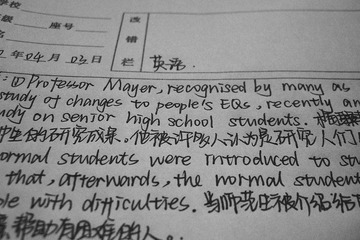 学校
级 座号
年 04 月 03 日
改错栏
英语.
: ① Professor Mayer, recognised by many as
study of changes to people's EQs, recently an
udy on senior high school students.
的研究成果. 他被许多人认为是研究人们
ormal students were introduced to stu
that, afterwards, the normal student
ple with difficulties. 当师范生被介绍给
帮助有困难的人.